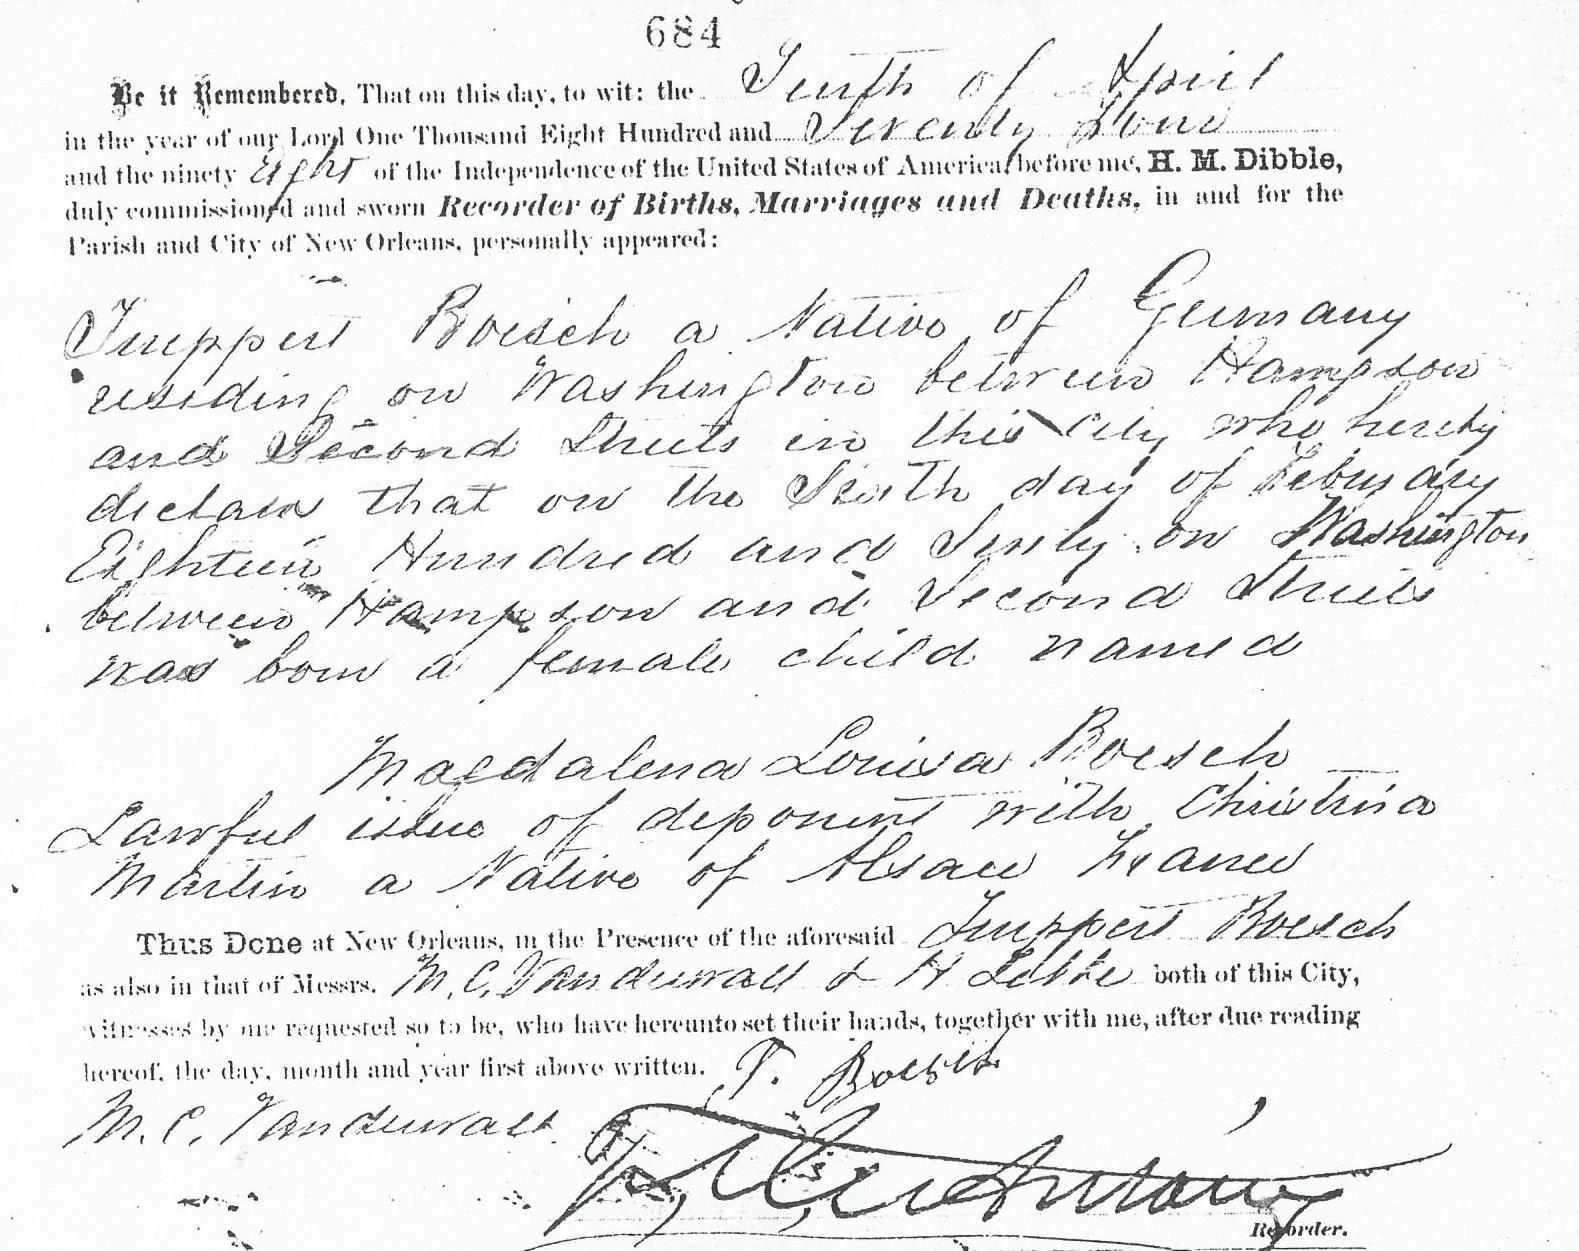 684
Be it Remembered, That on this day, to wit: the Tenth of April
in the year of our Lord One Thousand Eight Hundred and Seventy Four
and the ninety Eight of the Independence of the United States of America, before me, H. M. Dibble,
duly commissioned and sworn Recorder of Births, Marriages and Deaths, in and for the
Parish and City of New Orleans, personally appeared:
Boesch a Native of Germany
residing on Washington between Hampson
and Second Streets in this City who hereby
declares that on the Sixth day of February
Eighteen Hundred and Sixty on Washington
between Hampson and Second Streets
was born a female child named
Magdalena Louisa Boesch
Lawful issue of deponent with Christina
Martin a Native of Alsace France
Thus Done at New Orleans, in the Presence of the aforesaid Boesch
as also in that of Messrs. M. C. Vanderwall & H both of this City,
witnesses by me requested so to be, who have hereunto set their hands, together with me, after due reading
hereof, the day, month and year first above written. T. Boesch
M. C. Vanderwall
Recorder.